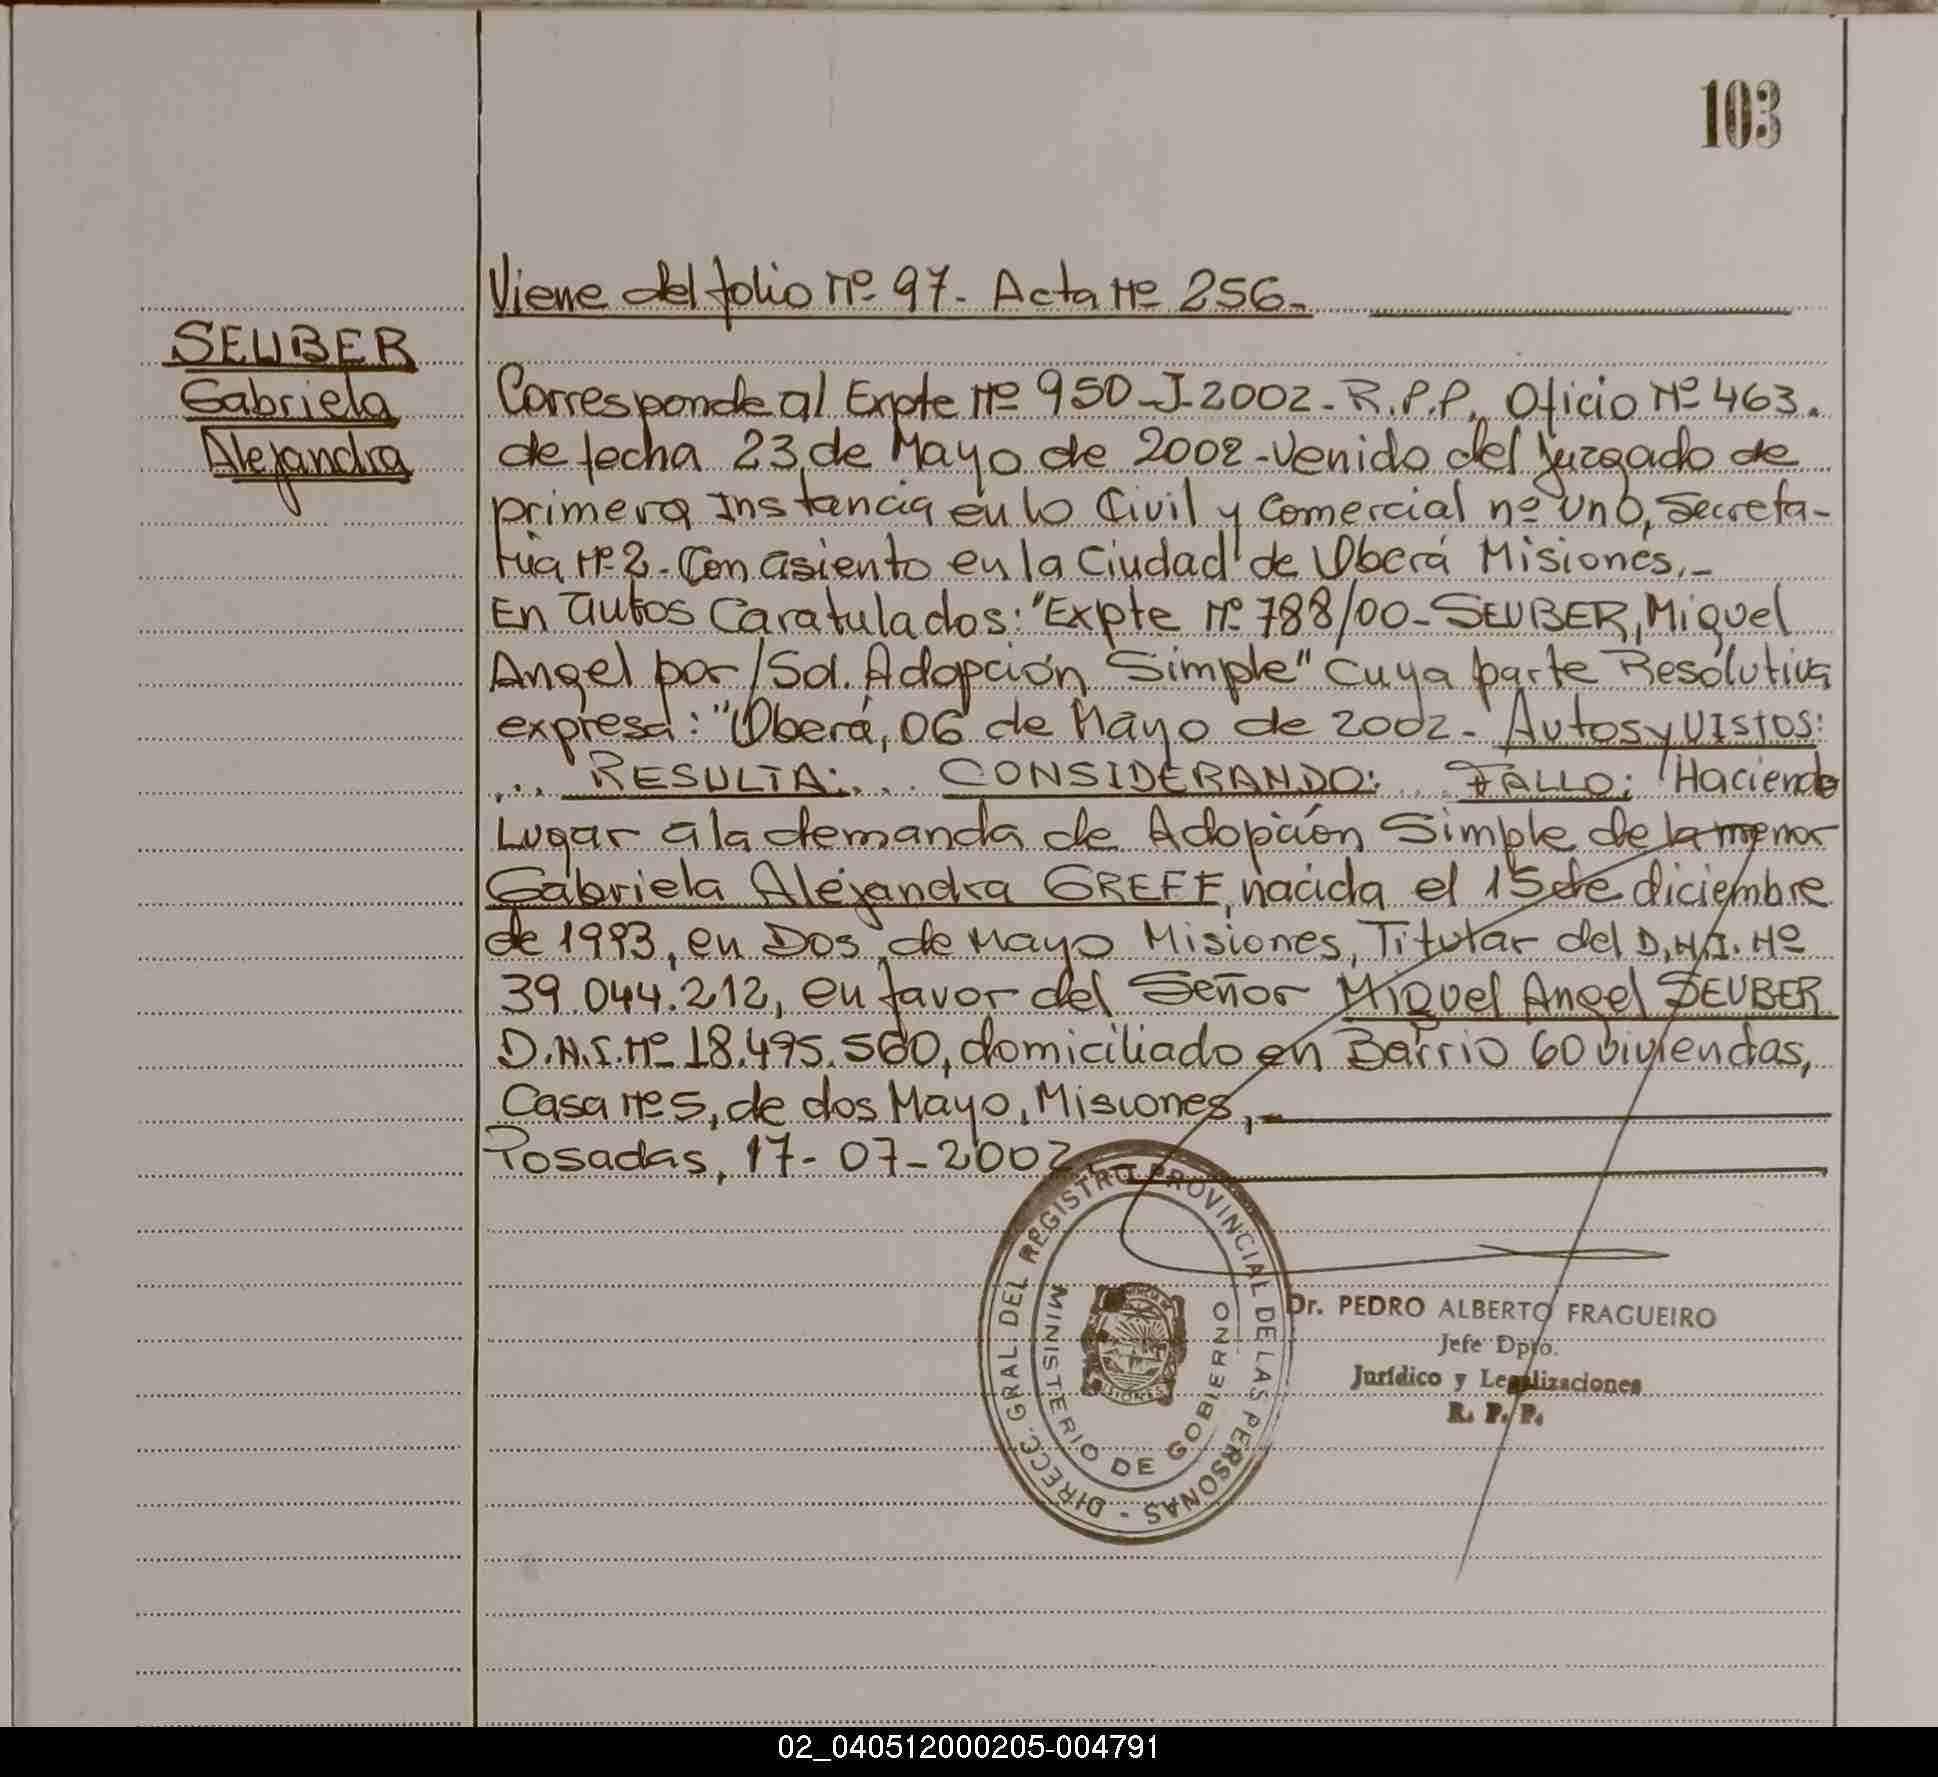 103
Viene del folio Nº 97. Acta Nº 256.
SEUBER
Gabriela
Alejandra
Corresponde al Expte Nº 950-J-2002-R.P.P. Oficio Nº 463.
de fecha 23 de Mayo de 2002-Venido del Juzgado de
primera Instancia en lo Civil y Comercial nº uno, Secreta-
ria Nº 2. Con asiento en la Ciudad de Oberá Misiones.-
En autos Caratulados: "Expte Nº 788/00-SEUBER, Miguel
Angel por/Sol. Adopción Simple" Cuya parte Resolutiva
expresa: "Oberá, 06 de Mayo de 2002- Autos y VISTOS:
... RESULTA:... CONSIDERANDO:... FALLO: Haciendo
Lugar a la demanda de Adopción Simple de la menor
Gabriela Alejandra GREFF, nacida el 15 de diciembre
de 1993, en Dos de Mayo Misiones, Titular del D.N.I. Nº
39.044.212, en favor del Señor Miguel Angel SEUBER
D.N.I. Nº 18.495.560, domiciliado en Barrio 60 viviendas,
Casa Nº 5, de dos Mayo, Misiones,-
Posadas, 17-07-2002
DIRECC. GRAL. DEL REGISTRO PROVINCIAL DE LAS PERSONAS -
MINISTERIO DE GOBIERNO
Dr. PEDRO ALBERTO FRAGUEIRO
Jefe Dpto.
Jurídico y Legalizaciones
R. P. P.
02_040512000205-004791